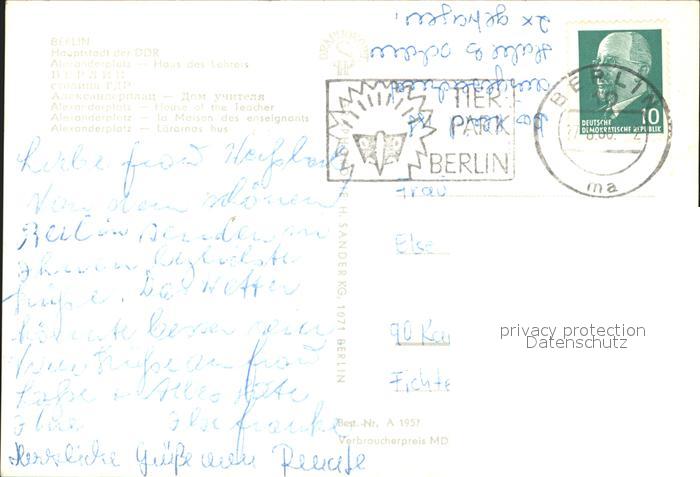 BERLIN
Hauptstadt der DDR
Alexanderplatz — Haus des Lehrers
БЕРЛИН
столица ГДР
Александерплац — Дом учителя
Alexanderplatz — House of the Teacher
Alexanderplatz — la Maison des enseignants
Alexanderplatz — Lärarnas hus
TIER-
PARK
BERLIN
BERLIN
ma
10
DEUTSCHE
DEMOKRATISCHE REPUBLIK
Liebe Frau
Von dem schönen
Berlin senden wir
Ihnen herzlichste
Grüße. Das Wetter
könnte besser sein
Viele Grüße an Frau
Alles Gute
Ihre Else Franke
Herzliche Grüße von Renate
H. SANDER KG, 1071 BERLIN
Frau
Else
90 Kar
Fichte
privacy protection
Datenschutz
Best.-Nr. A 1957
Verbraucherpreis MD